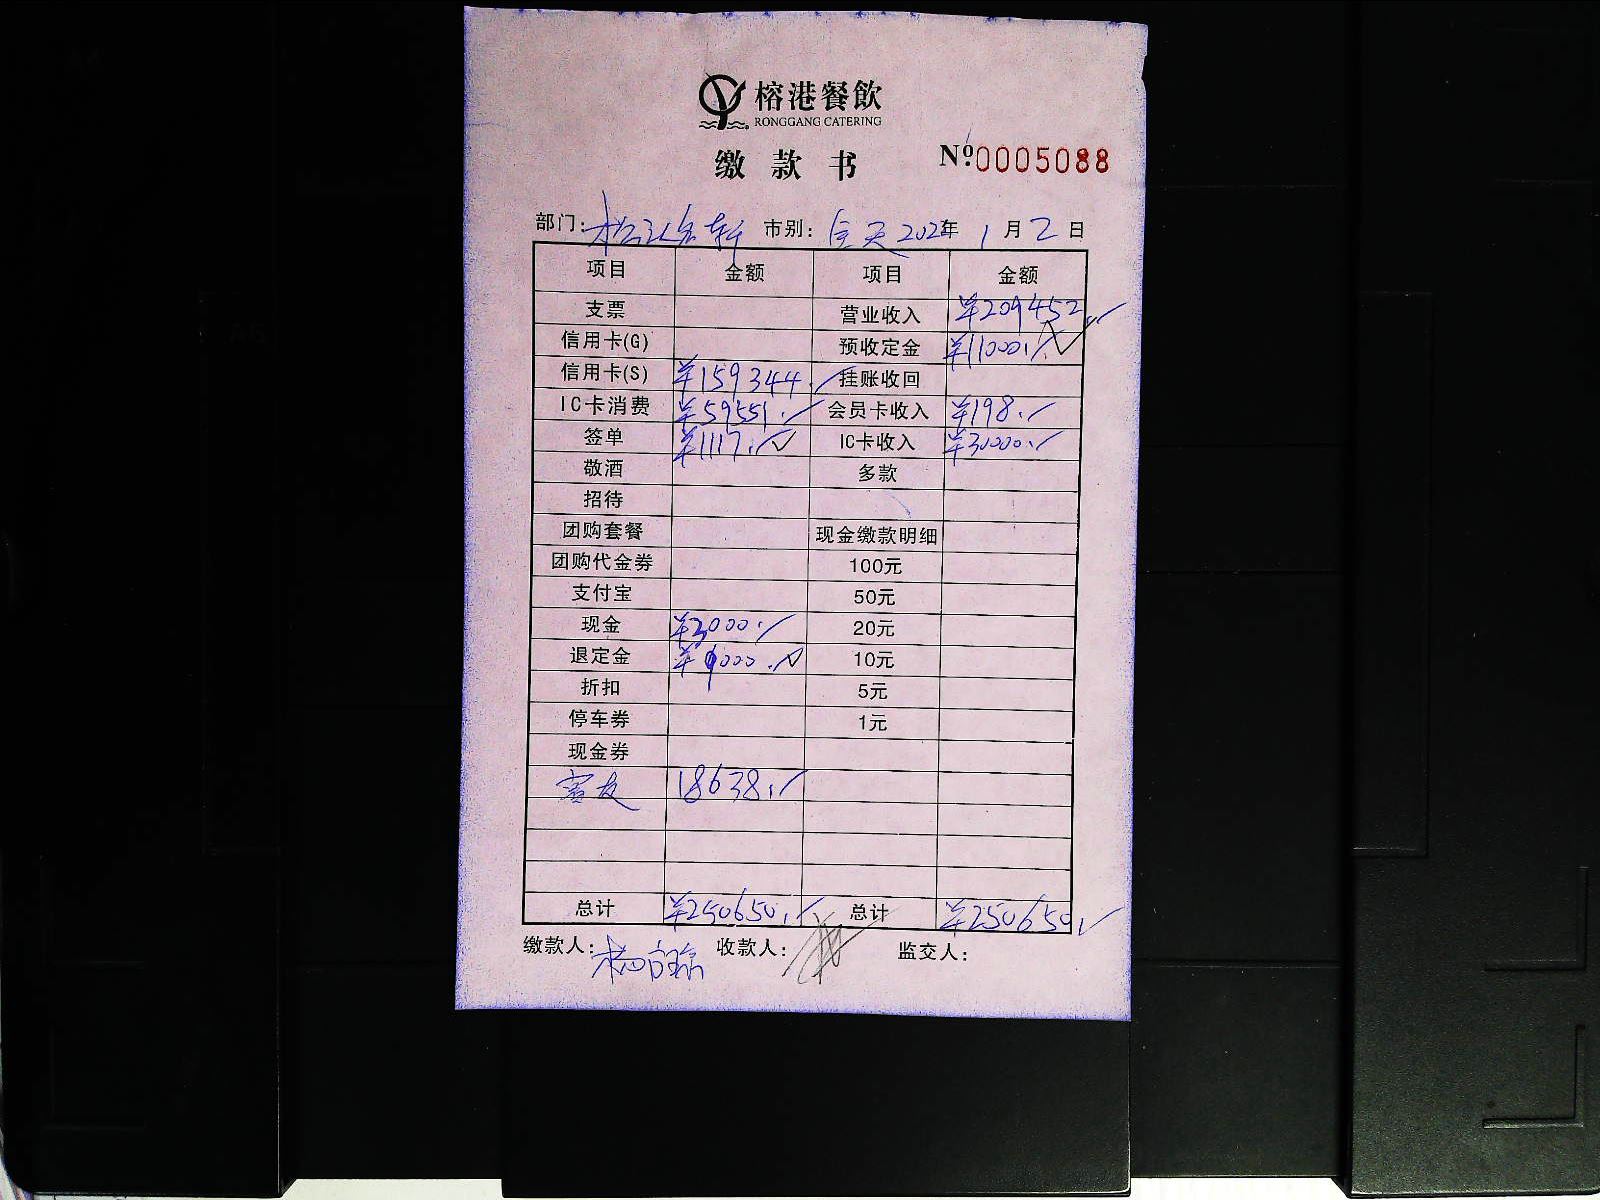 榕港餐飲
RONGGANG CATERING
缴款书 №:0005088
部门: 市别: 全天 2022年 1月2日
项目 金额 项目 金额
支票 营业收入 ¥209452.
信用卡(G) 预收定金 ¥11000.
信用卡(S) ¥159344. 挂账收回
IC卡消费 ¥59551. 会员卡收入 ¥198.
签单 ¥1117. IC卡收入 ¥30000.
敬酒 多款
招待
团购套餐 现金缴款明细
团购代金券 100元
支付宝 50元
现金 ¥3000. 20元
退定金 ¥9000. 10元
折扣 5元
停车券 1元
现金券
18638.
总计 ¥250650. 总计 ¥250650.
缴款人: 收款人: 监交人: